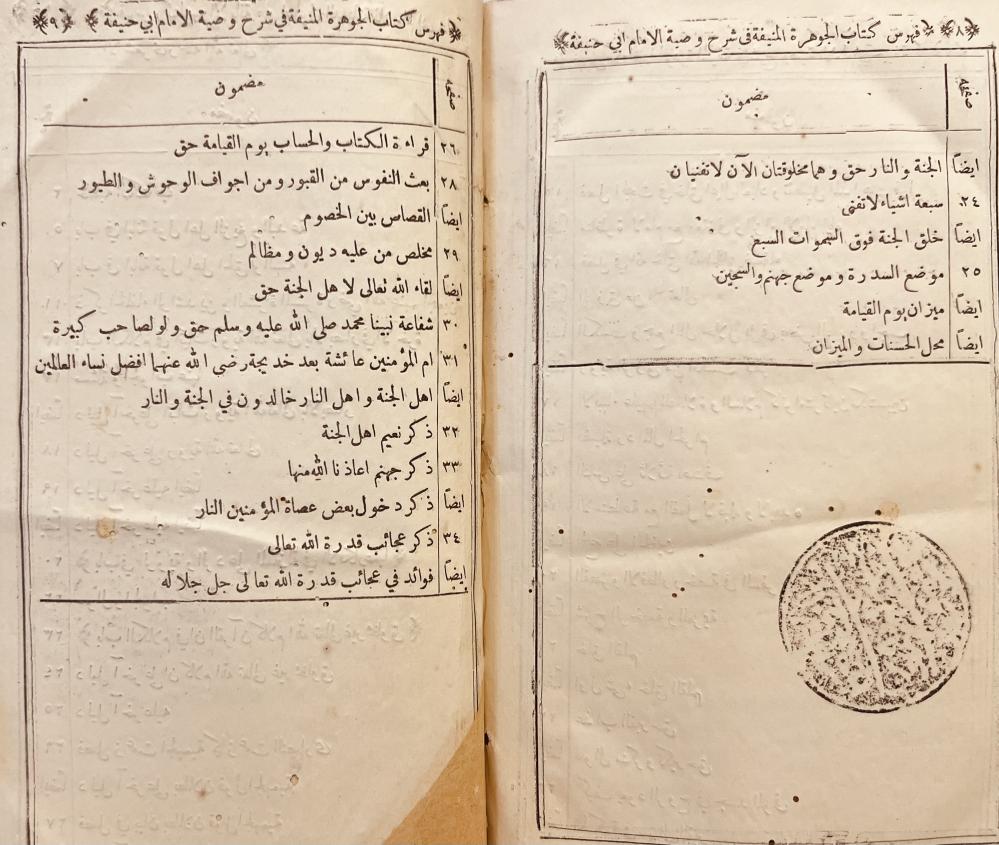 ﴿٨﴾ ﴿فهرس كتاب الجوهرة المنيفة في شرح وصية الامام ابي حنيفة﴾
صفحه مضمون
ايضاً الجنة والنار حق وهما مخلوقتان الآن لا تفنيان
٢٤ سبعة اشياء لا تفنى
ايضاً خلق الجنة فوق السموات السبع
٢٥ موضع السدرة وموضع جهنم والسجين
ايضاً ميزان يوم القيامة
ايضاً محل الحسنات والميزان
﴿فهرس كتاب الجوهرة المنيفة في شرح وصية الامام ابي حنيفة﴾ ﴿٩﴾
صفحه مضمون
٢٦ قراءة الكتاب والحساب يوم القيامة حق
٢٨ بعث النفوس من القبور ومن اجواف الوحوش والطيور
ايضاً القصاص بين الخصوم
٢٩ مخلص من عليه ديون ومظالم
ايضاً لقاء الله تعالى لاهل الجنة حق
٣٠ شفاعة نبينا محمد صلى الله عليه وسلم حق ولو لصاحب كبيرة
٣١ ام المؤمنين عائشة بعد خديجة رضي الله عنهما افضل نساء العالمين
ايضاً اهل الجنة واهل النار خالدون في الجنة والنار
٣٢ ذكر نعيم اهل الجنة
٣٣ ذكر جهنم اعاذنا الله منها
ايضاً ذكر دخول بعض عصاة المؤمنين النار
٣٤ ذكر عجائب قدرة الله تعالى
ايضاً فوائد في عجائب قدرة الله تعالى جل جلاله